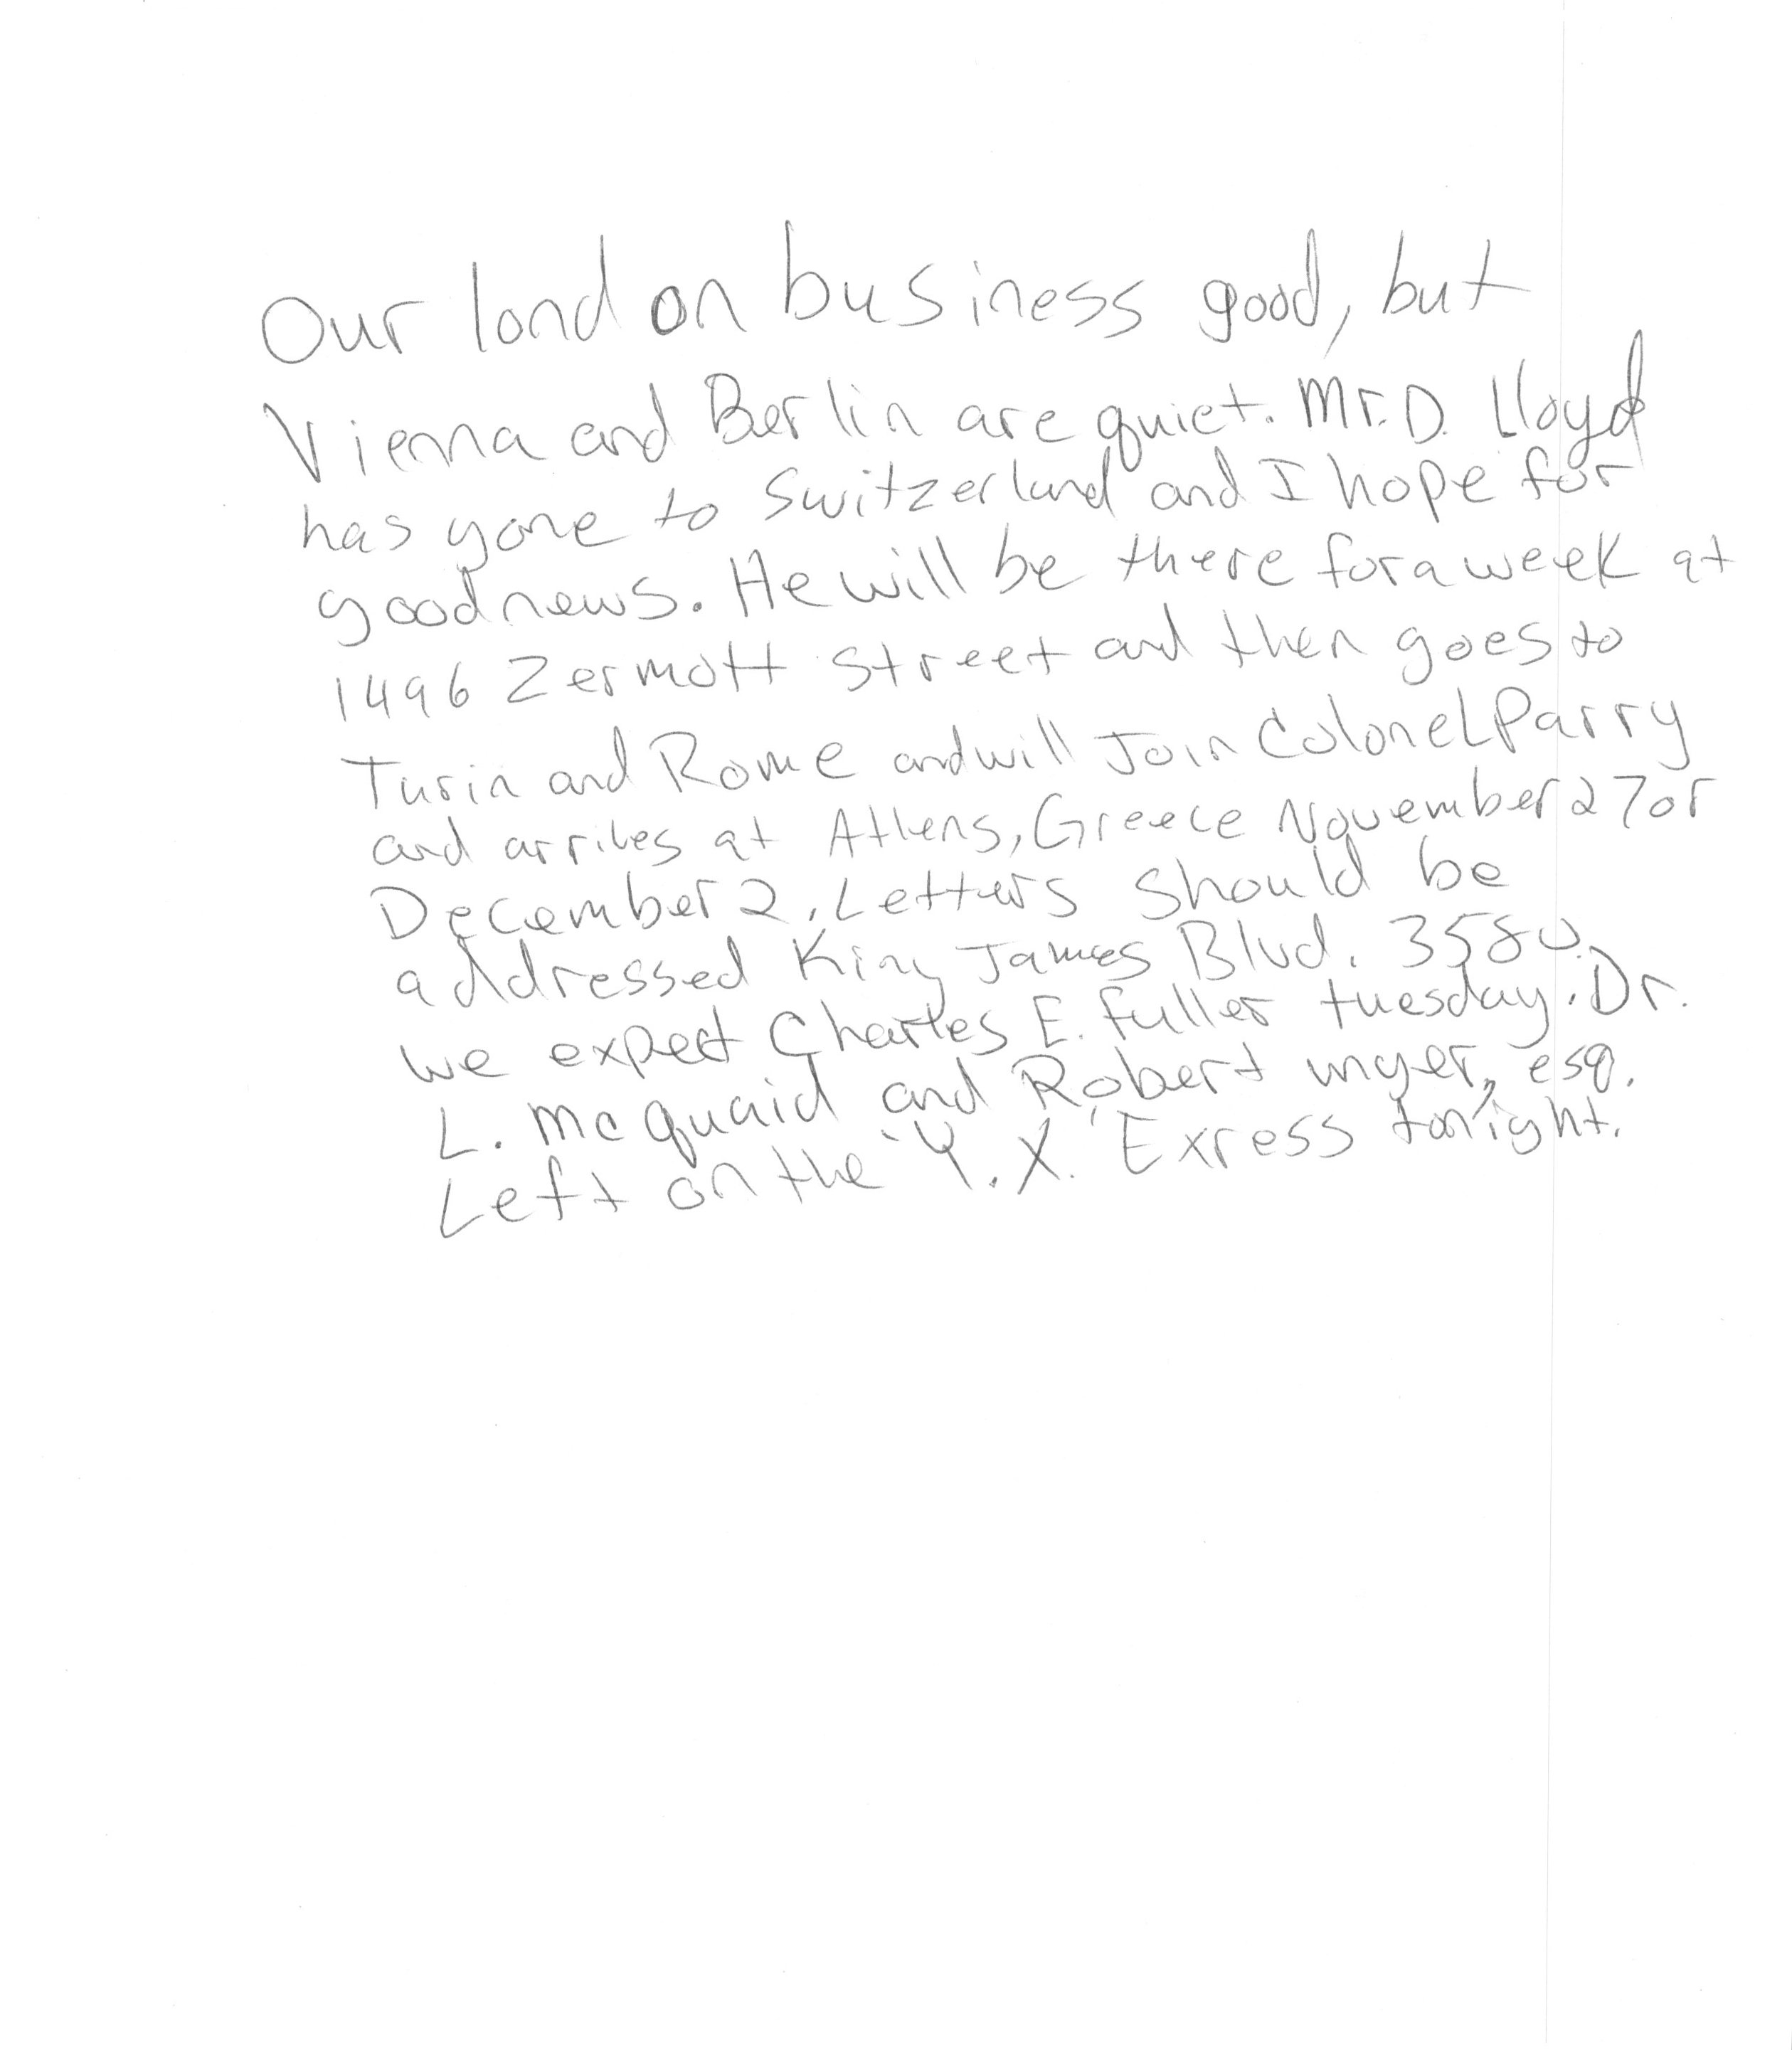 Our london business good, but
Vienna and Berlin are quiet. Mr. D. Lloyd
has gone to Switzerland and I hope for
good news. He will be there for a week at
1496 Zermott street and then goes to
Turin and Rome and will Join Colonel Parry
and arrives at Athens, Greece November 27 or
December 2. Letters should be
addressed King James Blvd. 3580.
we expect Charles E. fuller tuesday. Dr.
L. mc quaid and Robert unger, esq.
Left on the "Y. X." Exress tonight.